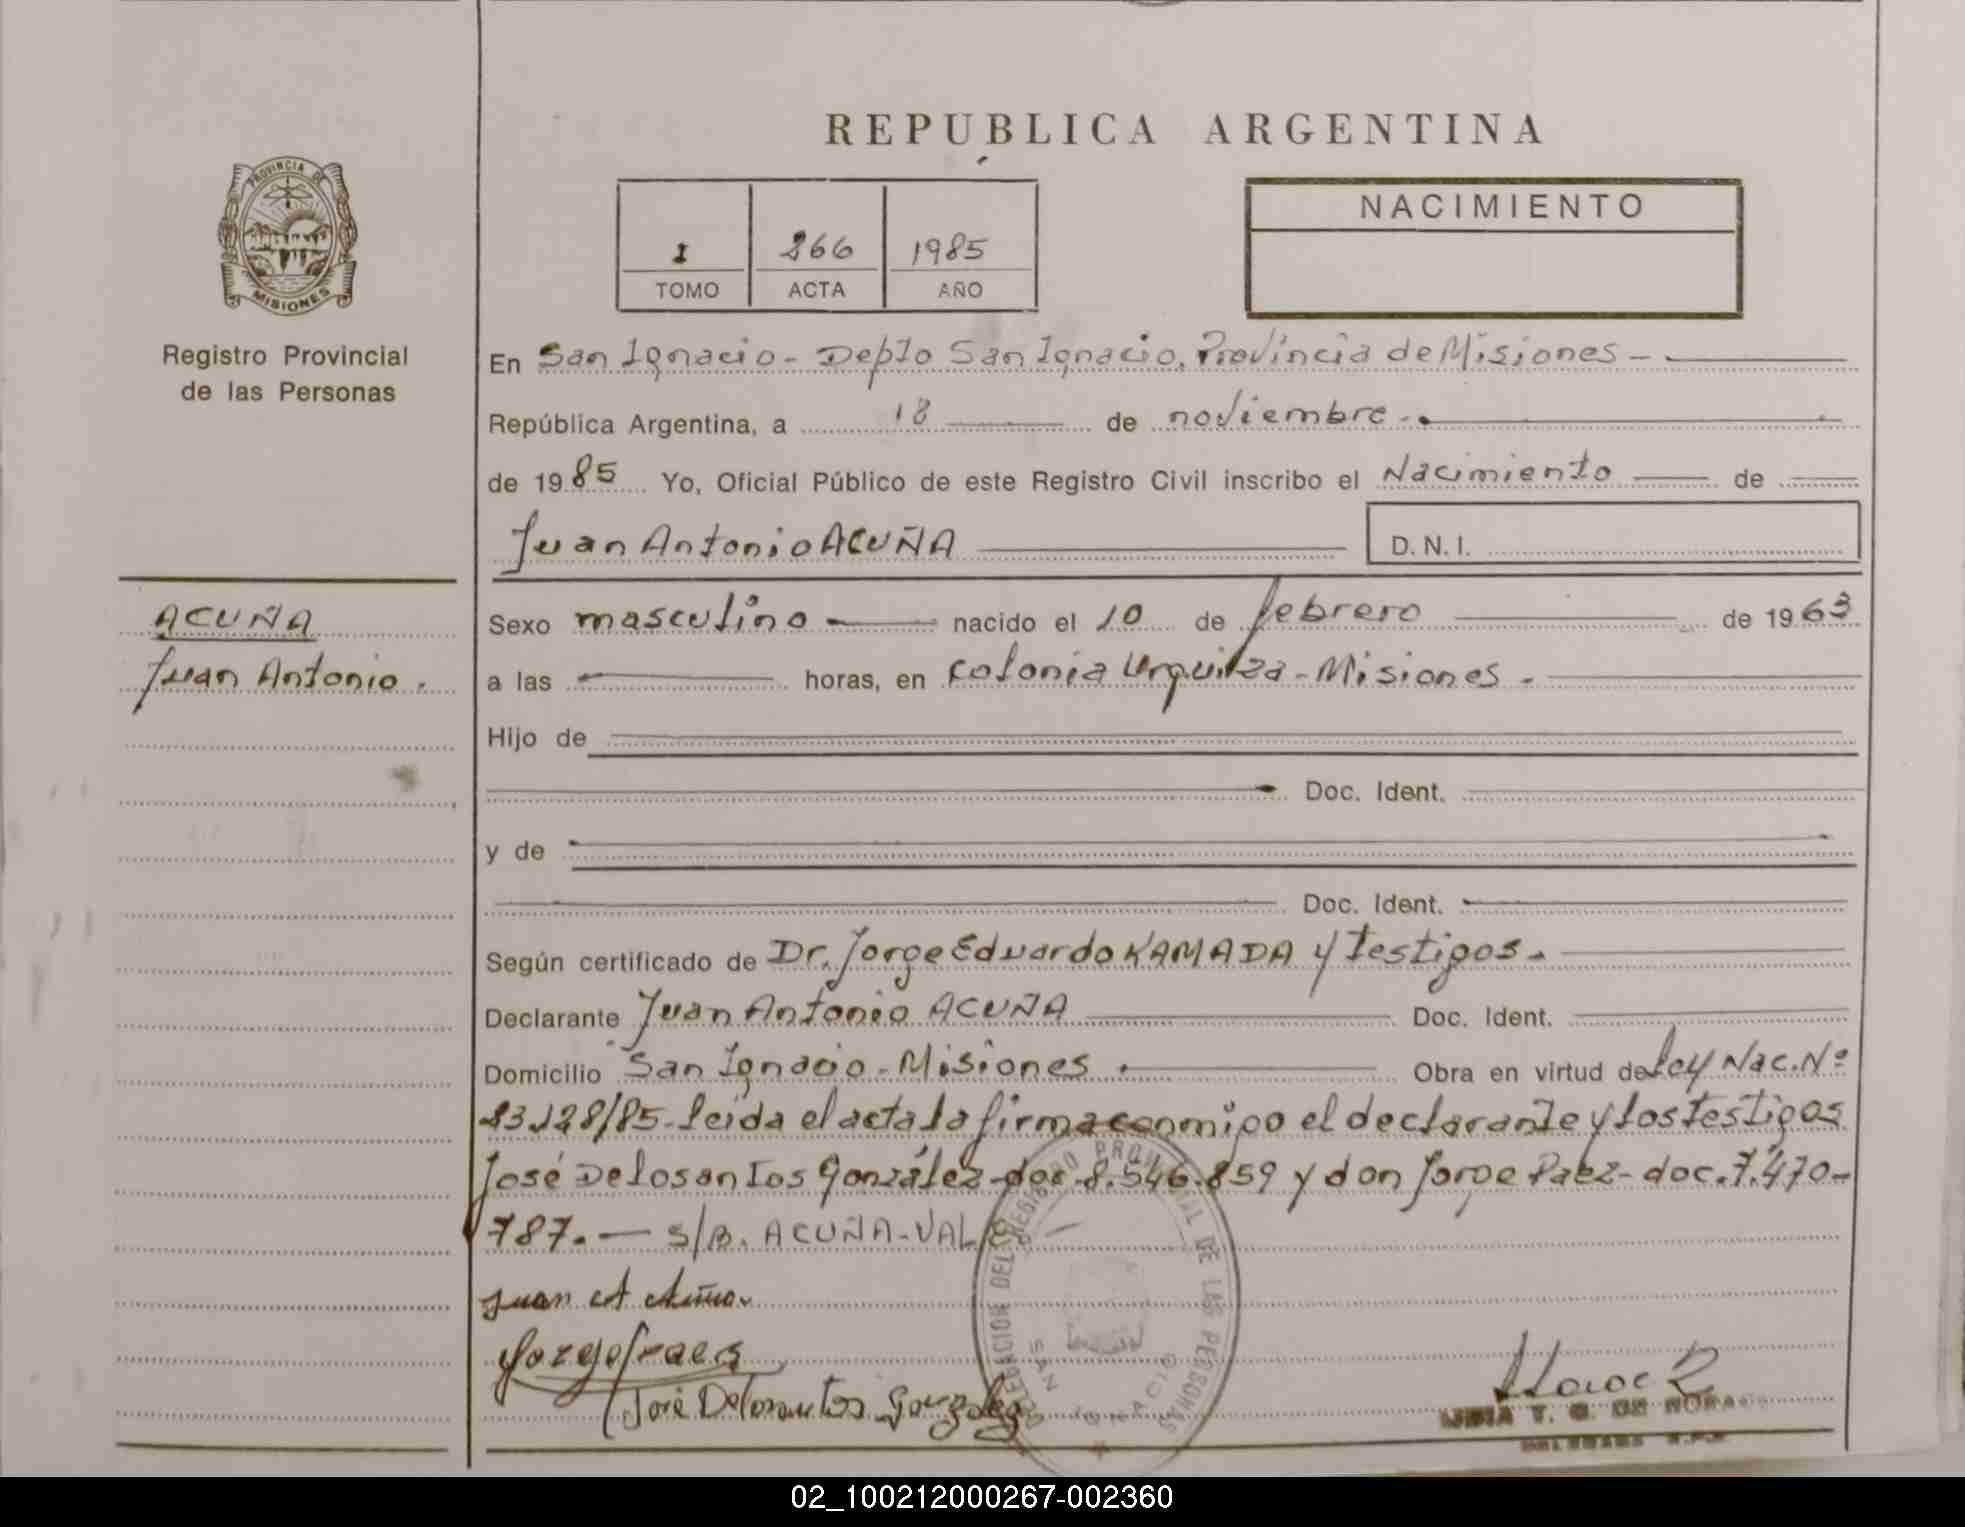 REPUBLICA ARGENTINA
PROVINCIA DE
MISIONES
Registro Provincial
de las Personas
I 266 1985
TOMO ACTA AÑO
NACIMIENTO
En San Ignacio - Depto San Ignacio, Provincia de Misiones -
República Argentina, a 18 de noviembre -.
de 1985 Yo, Oficial Público de este Registro Civil inscribo el Nacimiento de
Juan Antonio ACUÑA D.N.I.
ACUÑA
Juan Antonio.
Sexo masculino nacido el 10 de febrero de 1963
a las horas, en Colonia Urquiza - Misiones -
Hijo de
Doc. Ident.
y de
Doc. Ident.
Según certificado de Dr. Jorge Eduardo KAMADA y testigos.
Declarante Juan Antonio ACUÑA Doc. Ident.
Domicilio San Ignacio - Misiones . Obra en virtud de Ley Nac. Nº
23.128/85 - leida el acta la firma conmigo el declarante y los testigos
José Delosantos González - doc. 8.546.859 y don Jorge Paez - doc. 7.470-
787. — S/B. ACUÑA - VALE
Juan A Acuña
Jorge Paez
José Delosantos Gonzalez
DELEGACION DEL REGISTRO PROVINCIAL DE LAS PERSONAS
SAN IGNACIO
T. G. DE
02_100212000267-002360